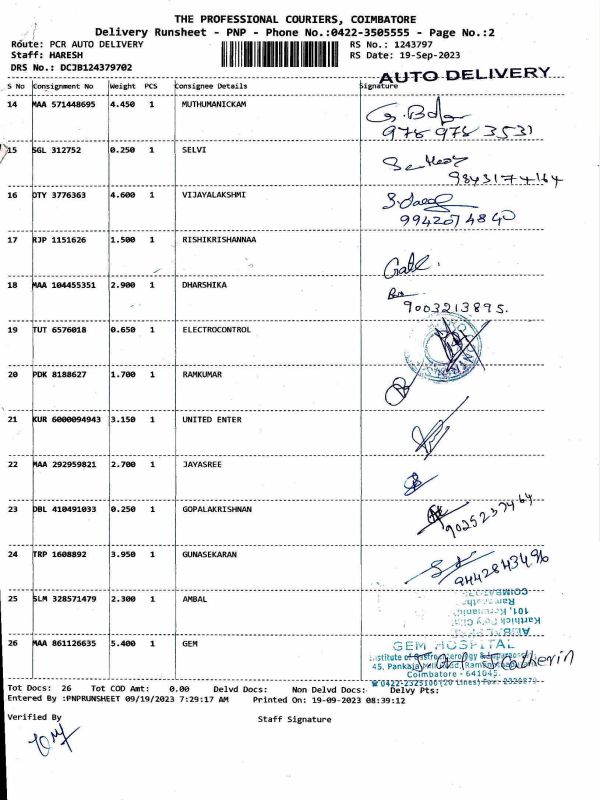 THE PROFESSIONAL COURIERS, COIMBATORE
Delivery Runsheet - PNP - Phone No.:0422-3505555 - Page No.:2
Route: PCR AUTO DELIVERY
RS No.: 1243797
Staff: HARESH
RS Date: 19-Sep-2023
DRS No.: DCJB124379702
AUTO DELIVERY
S No Consignment No Weight PCS Consignee Details Signature
14 MAA 571448695 4.450 1 MUTHUMANICKAM
978 978 3531
15 SGL 312752 0.250 1 SELVI
9843174164
16 OTY 3776363 4.600 1 VIJAYALAKSHMI
9942074840
17 RJP 1151626 1.500 1 RISHIKRISHANNAA
18 MAA 104455351 2.900 1 DHARSHIKA
9003213895.
19 TUT 6576018 0.650 1 ELECTROCONTROL
20 PDK 8188627 1.700 1 RAMKUMAR
21 KUR 6000094943 3.150 1 UNITED ENTER
22 MAA 292959821 2.700 1 JAYASREE
23 DBL 410491033 0.250 1 GOPALAKRISHNAN
9025237464
24 TRP 1608892 3.950 1 GUNASEKARAN
9442843496
25 SLM 328571479 2.300 1 AMBAL
COIMBATORE
26 MAA 861126635 5.400 1 GEM
GEM HOSPITAL
45, Pankaja Mill Road,
Coimbatore - 641045.
0422-2325100 (20 Lines)
Tot Docs: 26 Tot COD Amt: 0.00 Delvd Docs: Non Delvd Docs: Delvy Pts:
Entered By :PNPRUNSHEET 09/19/2023 7:29:17 AM Printed On: 19-09-2023 08:39:12
Verified By
Staff Signature